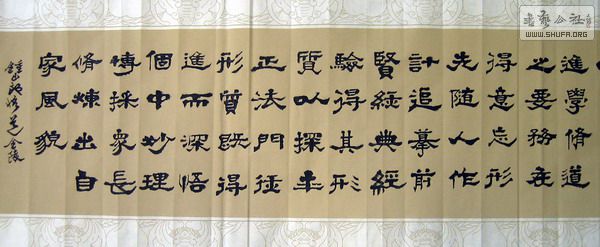 進學脩道
之要務在
得意忘形
先随人作
計追摹前
賢經典經
驗得其形
質以探求
正法門徑
形質既得
進而深悟
個中妙理
博採眾長
脩煉出自
家風貌
書藝公社
WWW.SHUFA.ORG